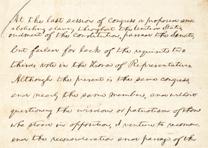 At the last session of Congress a proposed amendment
abolishing slavery throughout the United States,
of the Constitution, passed the Senate,
but failed for lack of the requisite two-
thirds vote in the House of Representatives
Although the present is the same Congress,
and nearly the same members, and without
questioning the wisdom or patriotism of those
who stood in opposition, I venture to recom-
mend the reconsideration and passage of the